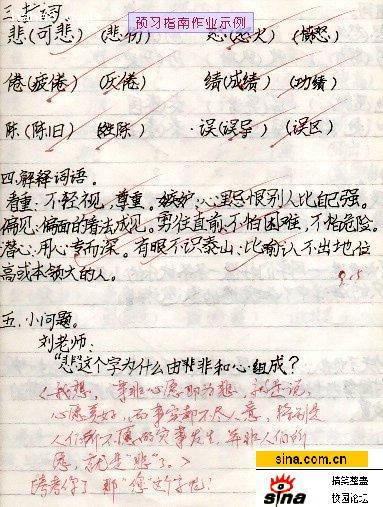 预习指南作业示例
悲(可悲) (悲伤) 怒(怒火) (愤怒)
倦(疲倦) (厌倦) 绩(成绩) (功绩)
陈(陈旧) (姓陈) 误(误导) (误区)
四.解释词语。
看重:不轻视,尊重。嫉妒:心里忌恨别人比自己强。
偏见:偏面的看法成见。勇往直前:不怕困难,不怕危险。
潜心:用心专而深。有眼不识泰山:比喻认不出地位
高或本领大的人。
五.小问题。
刘老师:
"悲"这个字为什么由非和心组成?
<我想,事非心愿即为悲,就是说,
心愿美好,而事实却不尽人意,特别是
人们所不愿的事发生,并非人们所
愿,就是"悲"了。>
考考你了 那 这个字呢!
sina.com.cn
sina
搞笑整蛊
校园论坛